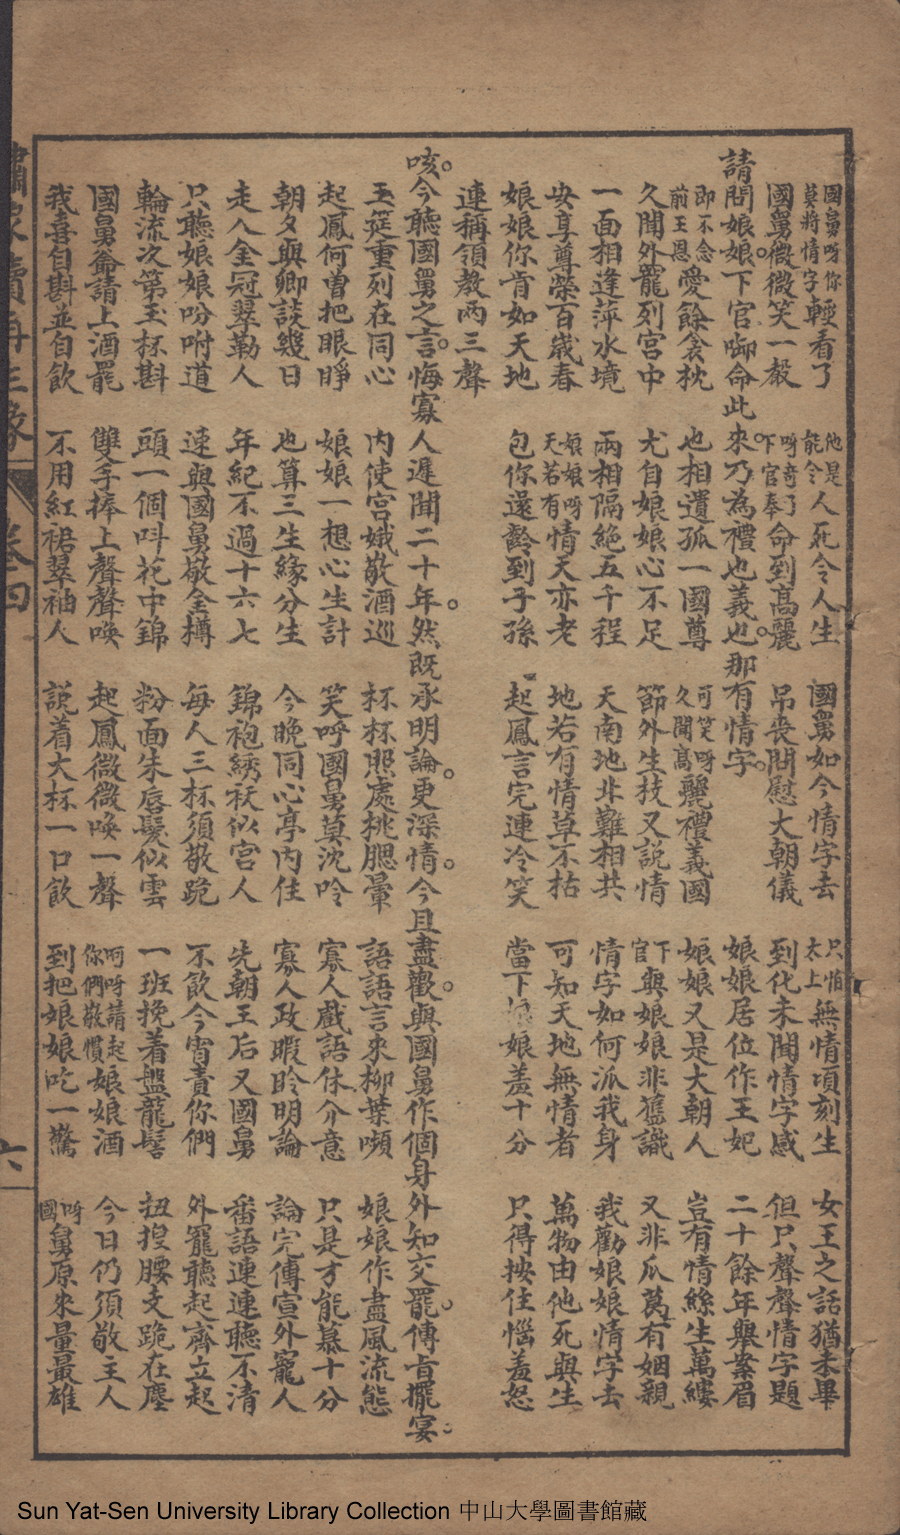 國舅呀你莫將情字輕看了 他是能令人死令人生 國舅如今情字去 只怕太上無情頃刻生 女王之話猶未畢
國舅微微笑一聲 呀奇了下官奉命到高麗 吊喪問慰大朝儀 到化未聞情字感 但只聲聲情字題
請問娘娘。下官啣命此來。乃為禮也義也。那有情字。 娘娘居位作王妃 二十餘年舉案眉
即不念前王恩愛餘衾枕 也相遺孤一國尊 可笑呀久聞高麗禮義國 娘娘又是大朝人 豈有情絲生萬縷
久聞外寵列宮中 尤自娘娘心不足 節外生技又說情 下官與娘娘非舊識 又非瓜葛有姻親
一面相逢萍水境 兩相隔絕五千程 天南地北難相共 情字如何派我身 我勸娘娘情字去
安享尊榮百歲春 娘娘呀天若有情天亦老 地若有情草不枯 可知天地無情者 萬物由他死與生
娘娘你肯如天地 包你還齡到子孫 起鳳言完連冷笑 當下娘娘羞十分 只得按住惱羞怒
連稱領教兩三聲
咳。今聽國舅之言。悔寡人遲聞二十年。然既承明論。更深情。今且盡歡。與國舅作個身外知交。罷。傳旨擺宴。
玉筵重列在同心 內使宮娥敬酒巡 杯杯照處桃腮暈 語語言來柳葉嚬 娘娘作盡風流態
起鳳何曾把眼睜 娘娘一想心生計 笑呼國舅莫沈吟 寡人戲語休介意 只是才能慕十分
朝夕與卿談幾日 也算三生緣分生 今晚同心亭內住 寡人政暇聆明論 論完傳宣外寵人
走入金冠翠勒人 年紀不過十六七 錦袍綉袄似宮人 先朝王后又國舅 番語連連聽不清
只聽娘娘吩咐道 速與國舅敬金樽 每人三杯須敬跪 不飲今宵責你們 外寵聽起齊立起
輪流次第玉杯斟 頭一個叫花中錦 粉面朱唇髮似雲 一班挽着盤龍髻 扭捏腰支跪在塵
國舅爺請上酒罷 雙手捧上聲聲喚 起鳳微微喚一聲 呵呀請起你們敬慣娘娘酒 今日仍須敬主人
我喜自斟並自飲 不用紅裙翠袖人 説着大杯一口飲 到把娘娘吃一驚 呀國舅原來量最雄
繡像續再生緣 卷四 六
Sun Yat-Sen University Library Collection 中山大學圖書館藏